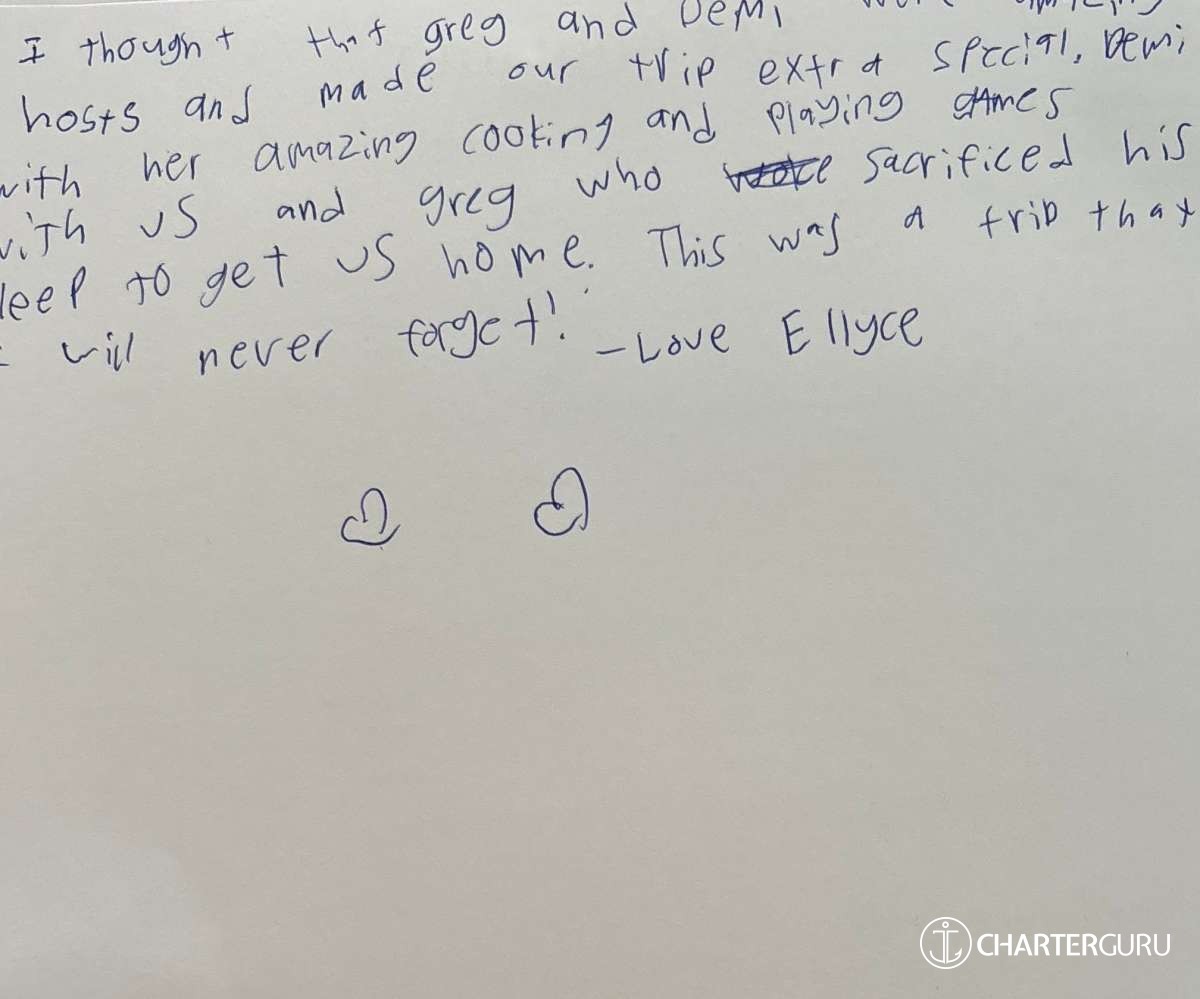 I thought that greg and Demi were amazing
hosts and made our trip extra special. Demi
with her amazing cooking and playing games
with us and greg who sacrificed his
leep to get us home. This was a trip that
I will never forget! -Love Ellyce
CHARTERGURU